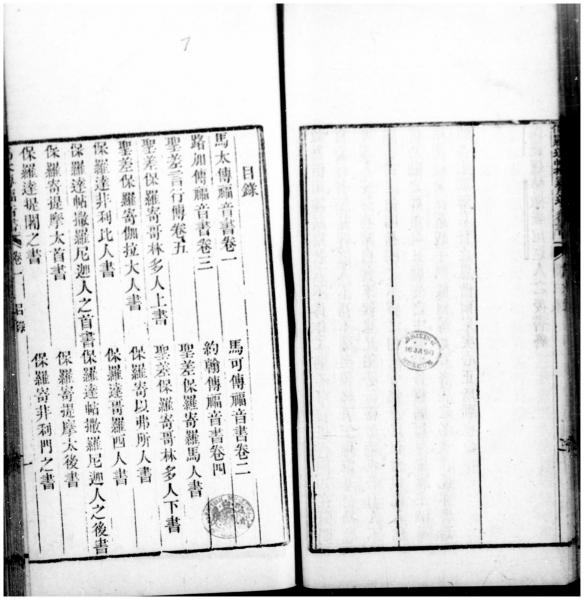 目錄
馬太傳福音書卷一 馬可傳福音書卷二
路加傳福音書卷三 約翰傳福音書卷四
聖差言行傳卷五 聖差保羅寄羅馬人書
聖差保羅寄哥林多人上書 聖差保羅寄哥林多人下書
聖差保羅寄伽拉大人書 保羅寄以弗所人書
保羅達非利比人書 保羅達哥羅西人書
保羅達帖撒羅尼迦人之首書 保羅達帖撒羅尼迦人之後書
保羅寄提摩太首書 保羅寄提摩太後書
保羅達提之書 保羅寄非利門之書
卷一
7